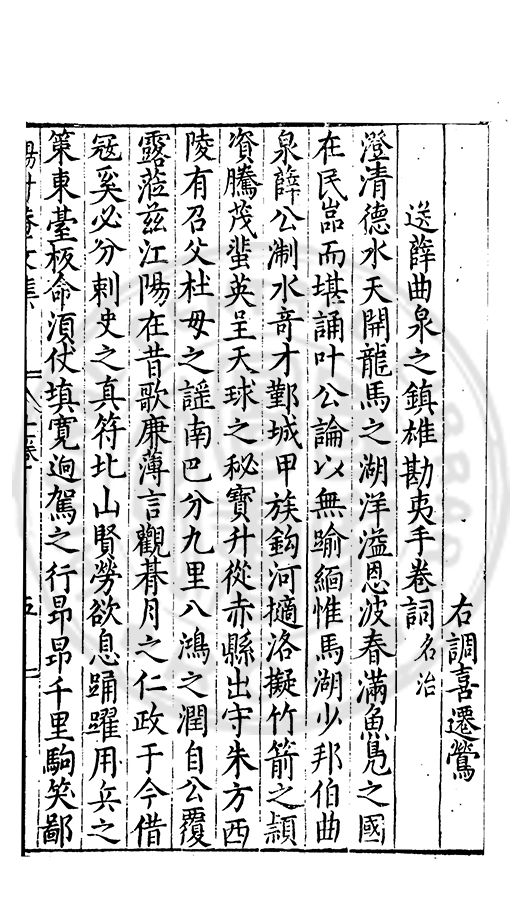 右調喜遷鶯
送薛曲泉之鎮雄勘夷手卷詞名治
澄清德水天開龍馬之湖洋溢恩波春滿魚鳧之國
在民嵓而堪誦叶公論以無踰緬惟馬湖少邦伯曲
泉薛公淛水竒才鄞城甲族鈎河擿洛擬竹箭之頴
資騰茂蜚英呈天球之秘寶升從赤縣出守朱方西
陵有召父杜毋之謡南巴分九里八鴻之潤自公覆
露蒞兹江陽在昔歌廉薄言觀朞月之仁政于今借
冦奚必分刺史之真符北山賢勞欲息踊躍用兵之
策東臺板命湏仗填寛逈駕之行昂昂千里駒笑鄙
楊升菴文集
十一卷
五